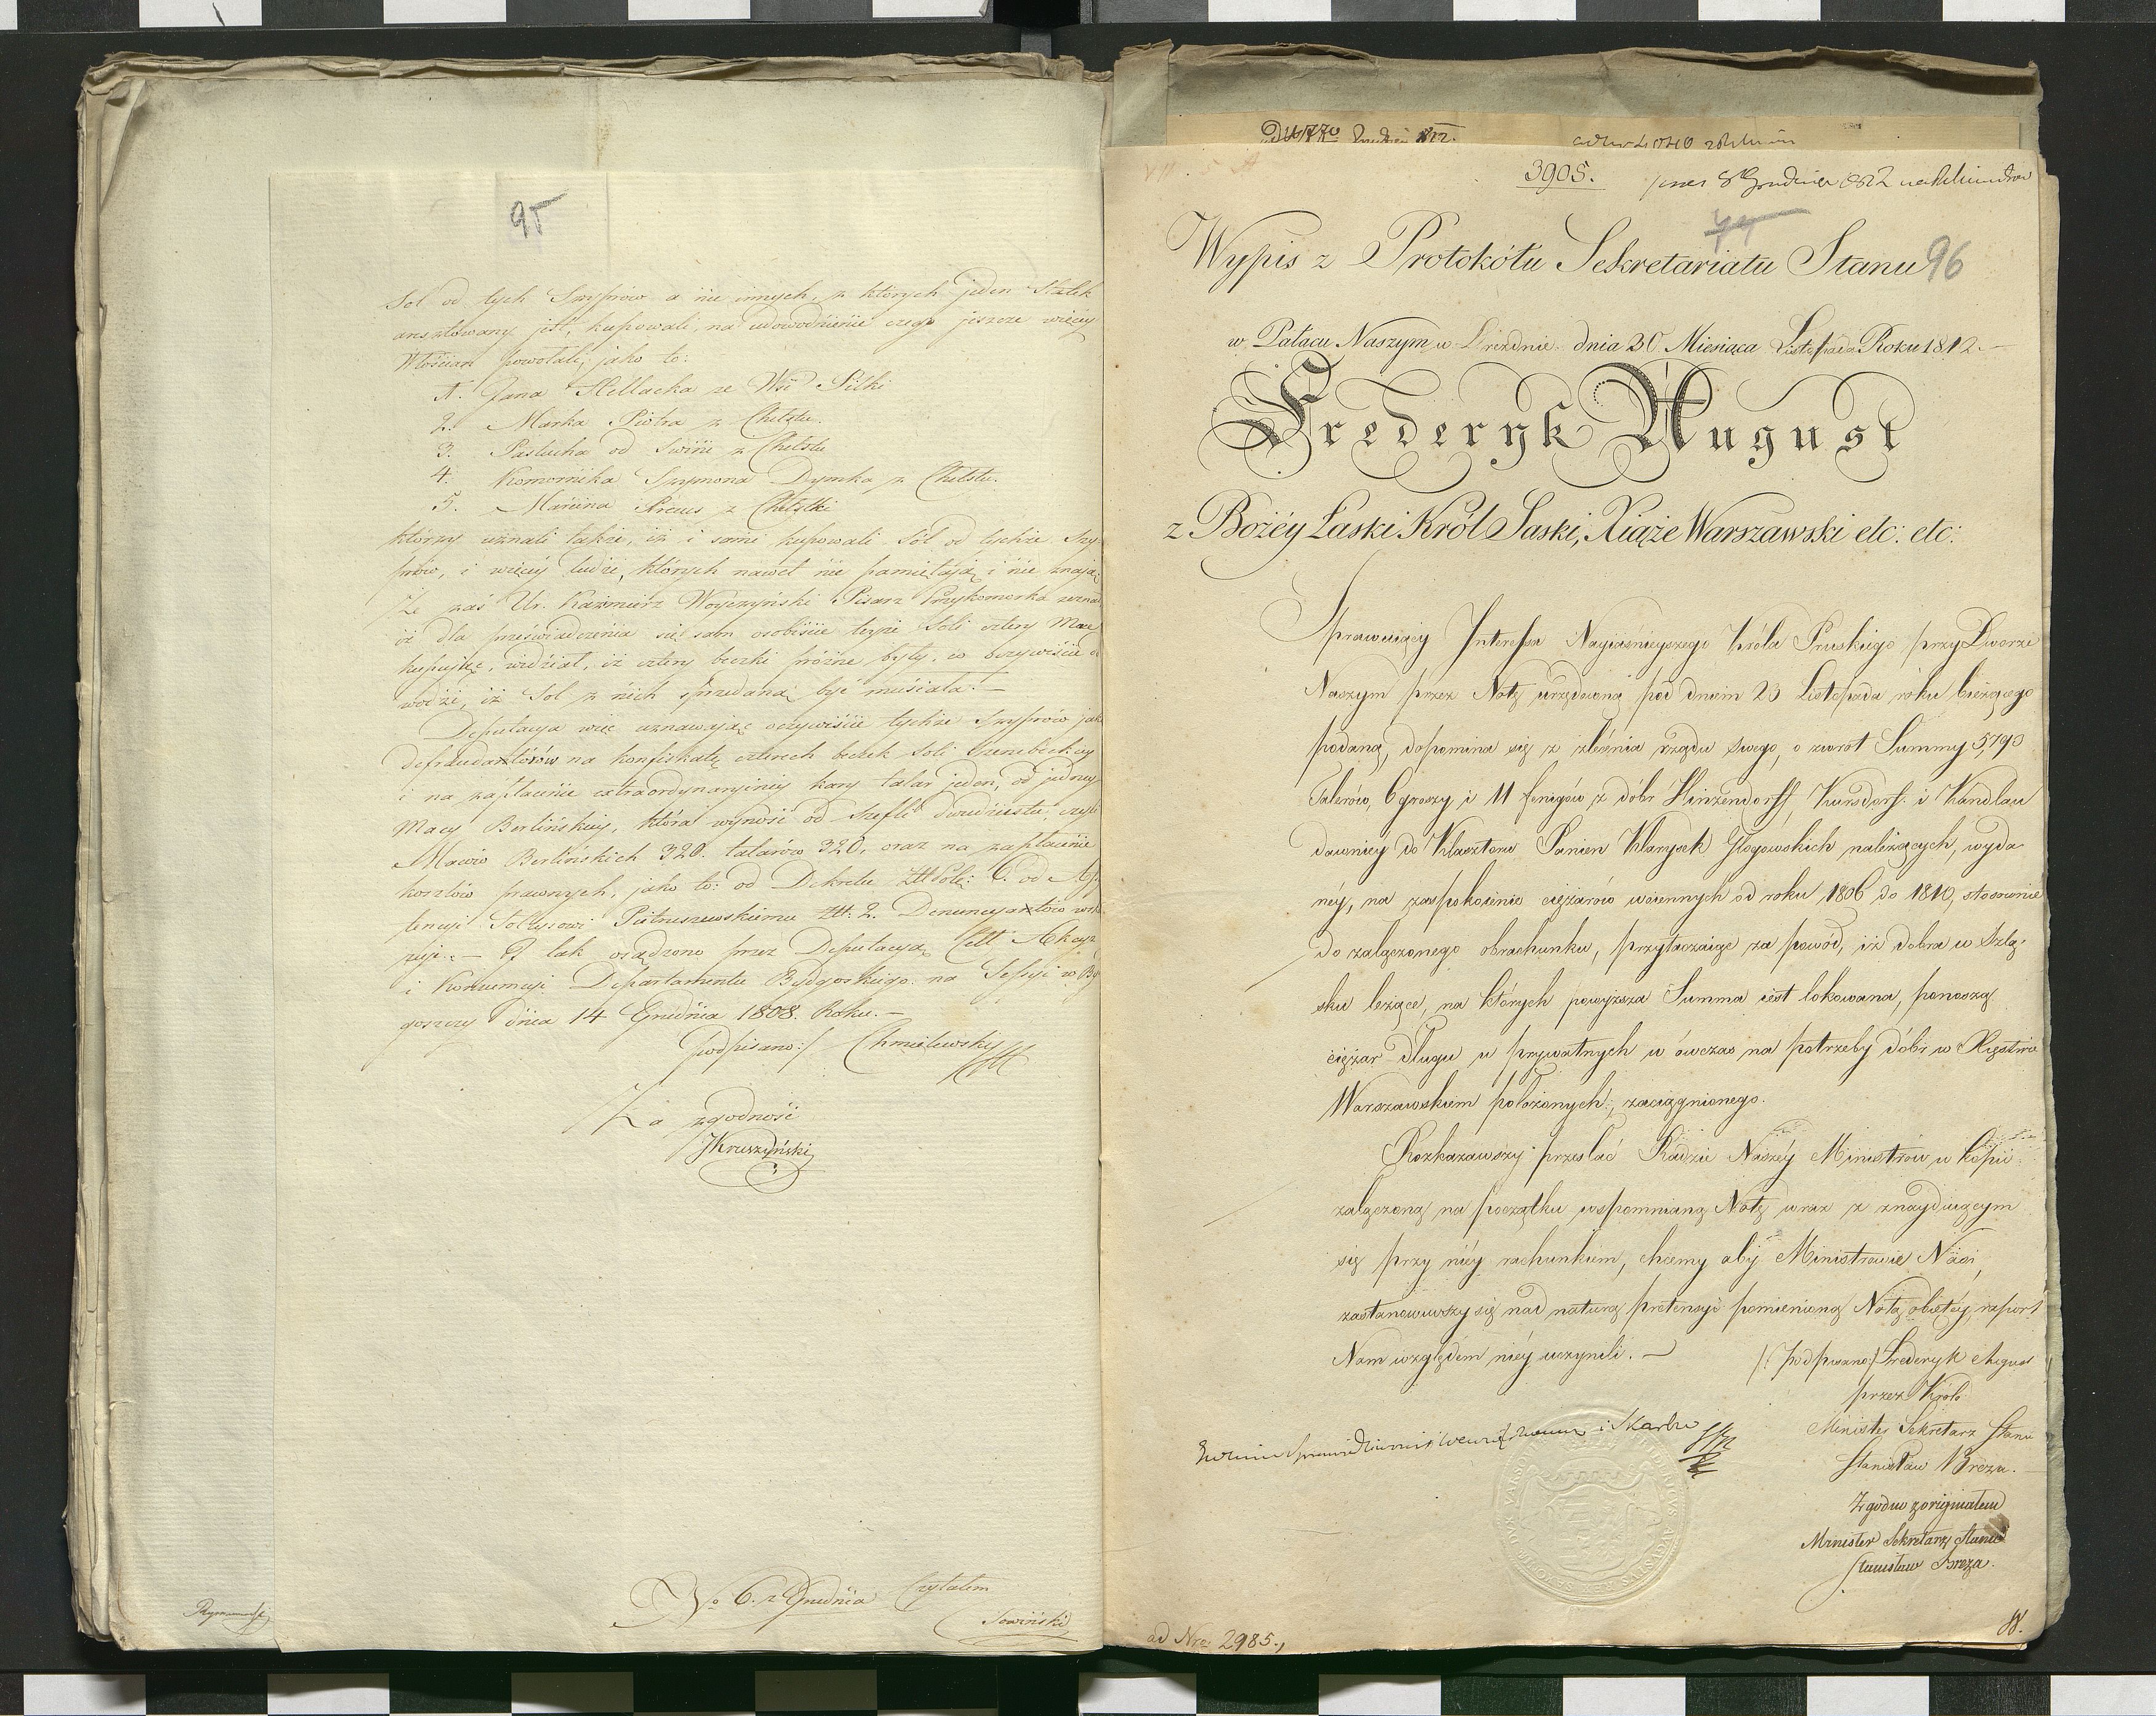 95
Sol od tych Szyprów a nie innych, z których jeden Szlek
aresztowany jest, kupowali, na udowodnienie czego jeszcze więcéy
Włościan powołali, jako to:
1. Jana Hellacha ze Wsi Pilki
2. Marka Piotra z Chelstu.
3. Pastucha od Swini z Chelstu
4. Komornika Szymona Dymka z Chelstu.
5. Marcina z Chelstki
którzy uznali także, iż i sami kupowali Sól od tychże Szy-
prów, i więcéy ludzi, których nawet nie pamiętają i nie znają
Że zaś Ur. Kazimierz Woyczyński Pisarz Przykomorka zezna
iż dla przeświadczenia się sam osobiście teyże Soli cztery Mace
kupując, widział, iż cztery beczki próżne były, co oczywiście do
wodzi, iż Sol z nich sprzedaną być musiała. —
Deputacya więc uznawając oczywiście tychże Szyprów jako
defraudantórów na konfiskatę czterech beczek Soli
i na zapłacenie extraordynaryinéy kary talar jeden, od jednéy
Macy Berlińskiéy, która wynosi od Szefli dwudziestu, czyli
Maców Berlińskich 320. talarów 320, oraz na zapłacenie
kosztów prawnych, jako to: od Dekretu Złł Pols: 6. od As-
tencyi Sołtysowi Pietruszewskiemu Złł. 2. Denuncyantów
— I tak osądzono przez Deputacyą Cełł Akcyz
i Konsumcyi Departamentu Bydgoskiego na Sessyi w By
goszczy dnia 14 Grudnia 1808. Roku. —
/podpisano:/ Chmielewski
Za zgodność
JKruszyński
No 6. z Grudnia Czytałem
Sowiński
3905. 8 Grudnia 1812
74
Wypis z Protokółu Sekretariatu Stanu 96
w Pałacu Naszym w Dreźdnie dnia 30 Miesiąca Listopada Roku 1812. —
Frederyk August
z Bożéy Łaski Król Saski, Xiąże Warszawski etc: etc:
Sprawuiący Interessa Nayiaśnieyszego Króla Pruskiego przy Dworze
Naszym przez Notę urzędową pod dniem 23 Listopada roku bieżącego
podaną, dopomina się z zlecenia rządu swego, o zwrot Summy 5,790
Talerów, 6 groszy i 11 fenigów z dóbr Hinzendorff, Kunsdorf i Kandlau
dawniéy do Klasztoru Panien Klarysek Głogowskich należących, wyda-
néy, na zaspokoienie ciężarów woiennych od roku 1806 do 1810, stosownie
do załączonego obrachunku, przytaczaiąc za powód, iż dobra w Szlą-
sku leżące, na których powyższa Summa iest lokowana, ponoszą
ciężar długu u prywatnych w ówczas na potrzeby dóbr w Xięstwie
Warszawskiem położonych, zaciągnionego.
Rozkazawszy przesłać Radzie Naszéy Ministrów w kopii
załączoną na początku wspomnianą Notę wraz z znayduiącym
się przy niéy rachunkiem, chcemy aby Ministrowie Nasi,
zastanowiwszy się nad naturą pretensyi pomienioną Notą obiętéy, raport
Nam względem niéy uczynili. — /(podpisano) Frederyk August
przez Króla
Minister Sekretarz Stanu
Stanisław Breza. —
i Skarbu
Zgodno z oryginałem
Minister Sekretarz Stanu
Stanisław Breza.
ad Nro: 2985.,